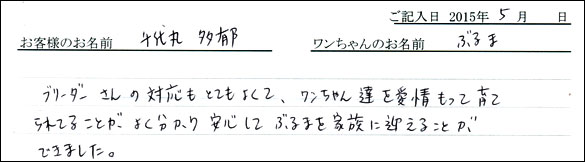 ご記入日 2015年 5月 日
お客様のお名前 千代丸 多郁 ワンちゃんのお名前 ぶるま
ブリーダーさんの対応もとてもよくて、ワンちゃん達を愛情もって育て
られてることがよく分かり安心してぶるまを家族に迎えることが
できました。